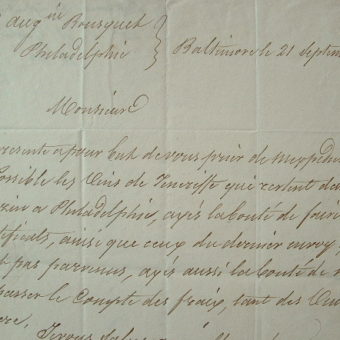 aug^in Bousquet
Philadelphie
Baltimore le 21 Septem
Monsieur
resente a pour but de vous prier de m'expédier
ossible les Vins de Teneriffe qui restent da
zin a Philadelphie, ayés la bonté de faire
tificats, ainsi que ceux du dernier envoy,
t pas parvenus, ayés aussi la bonté de
passer le Compte des fraix, tant des Vin
Je vous salue